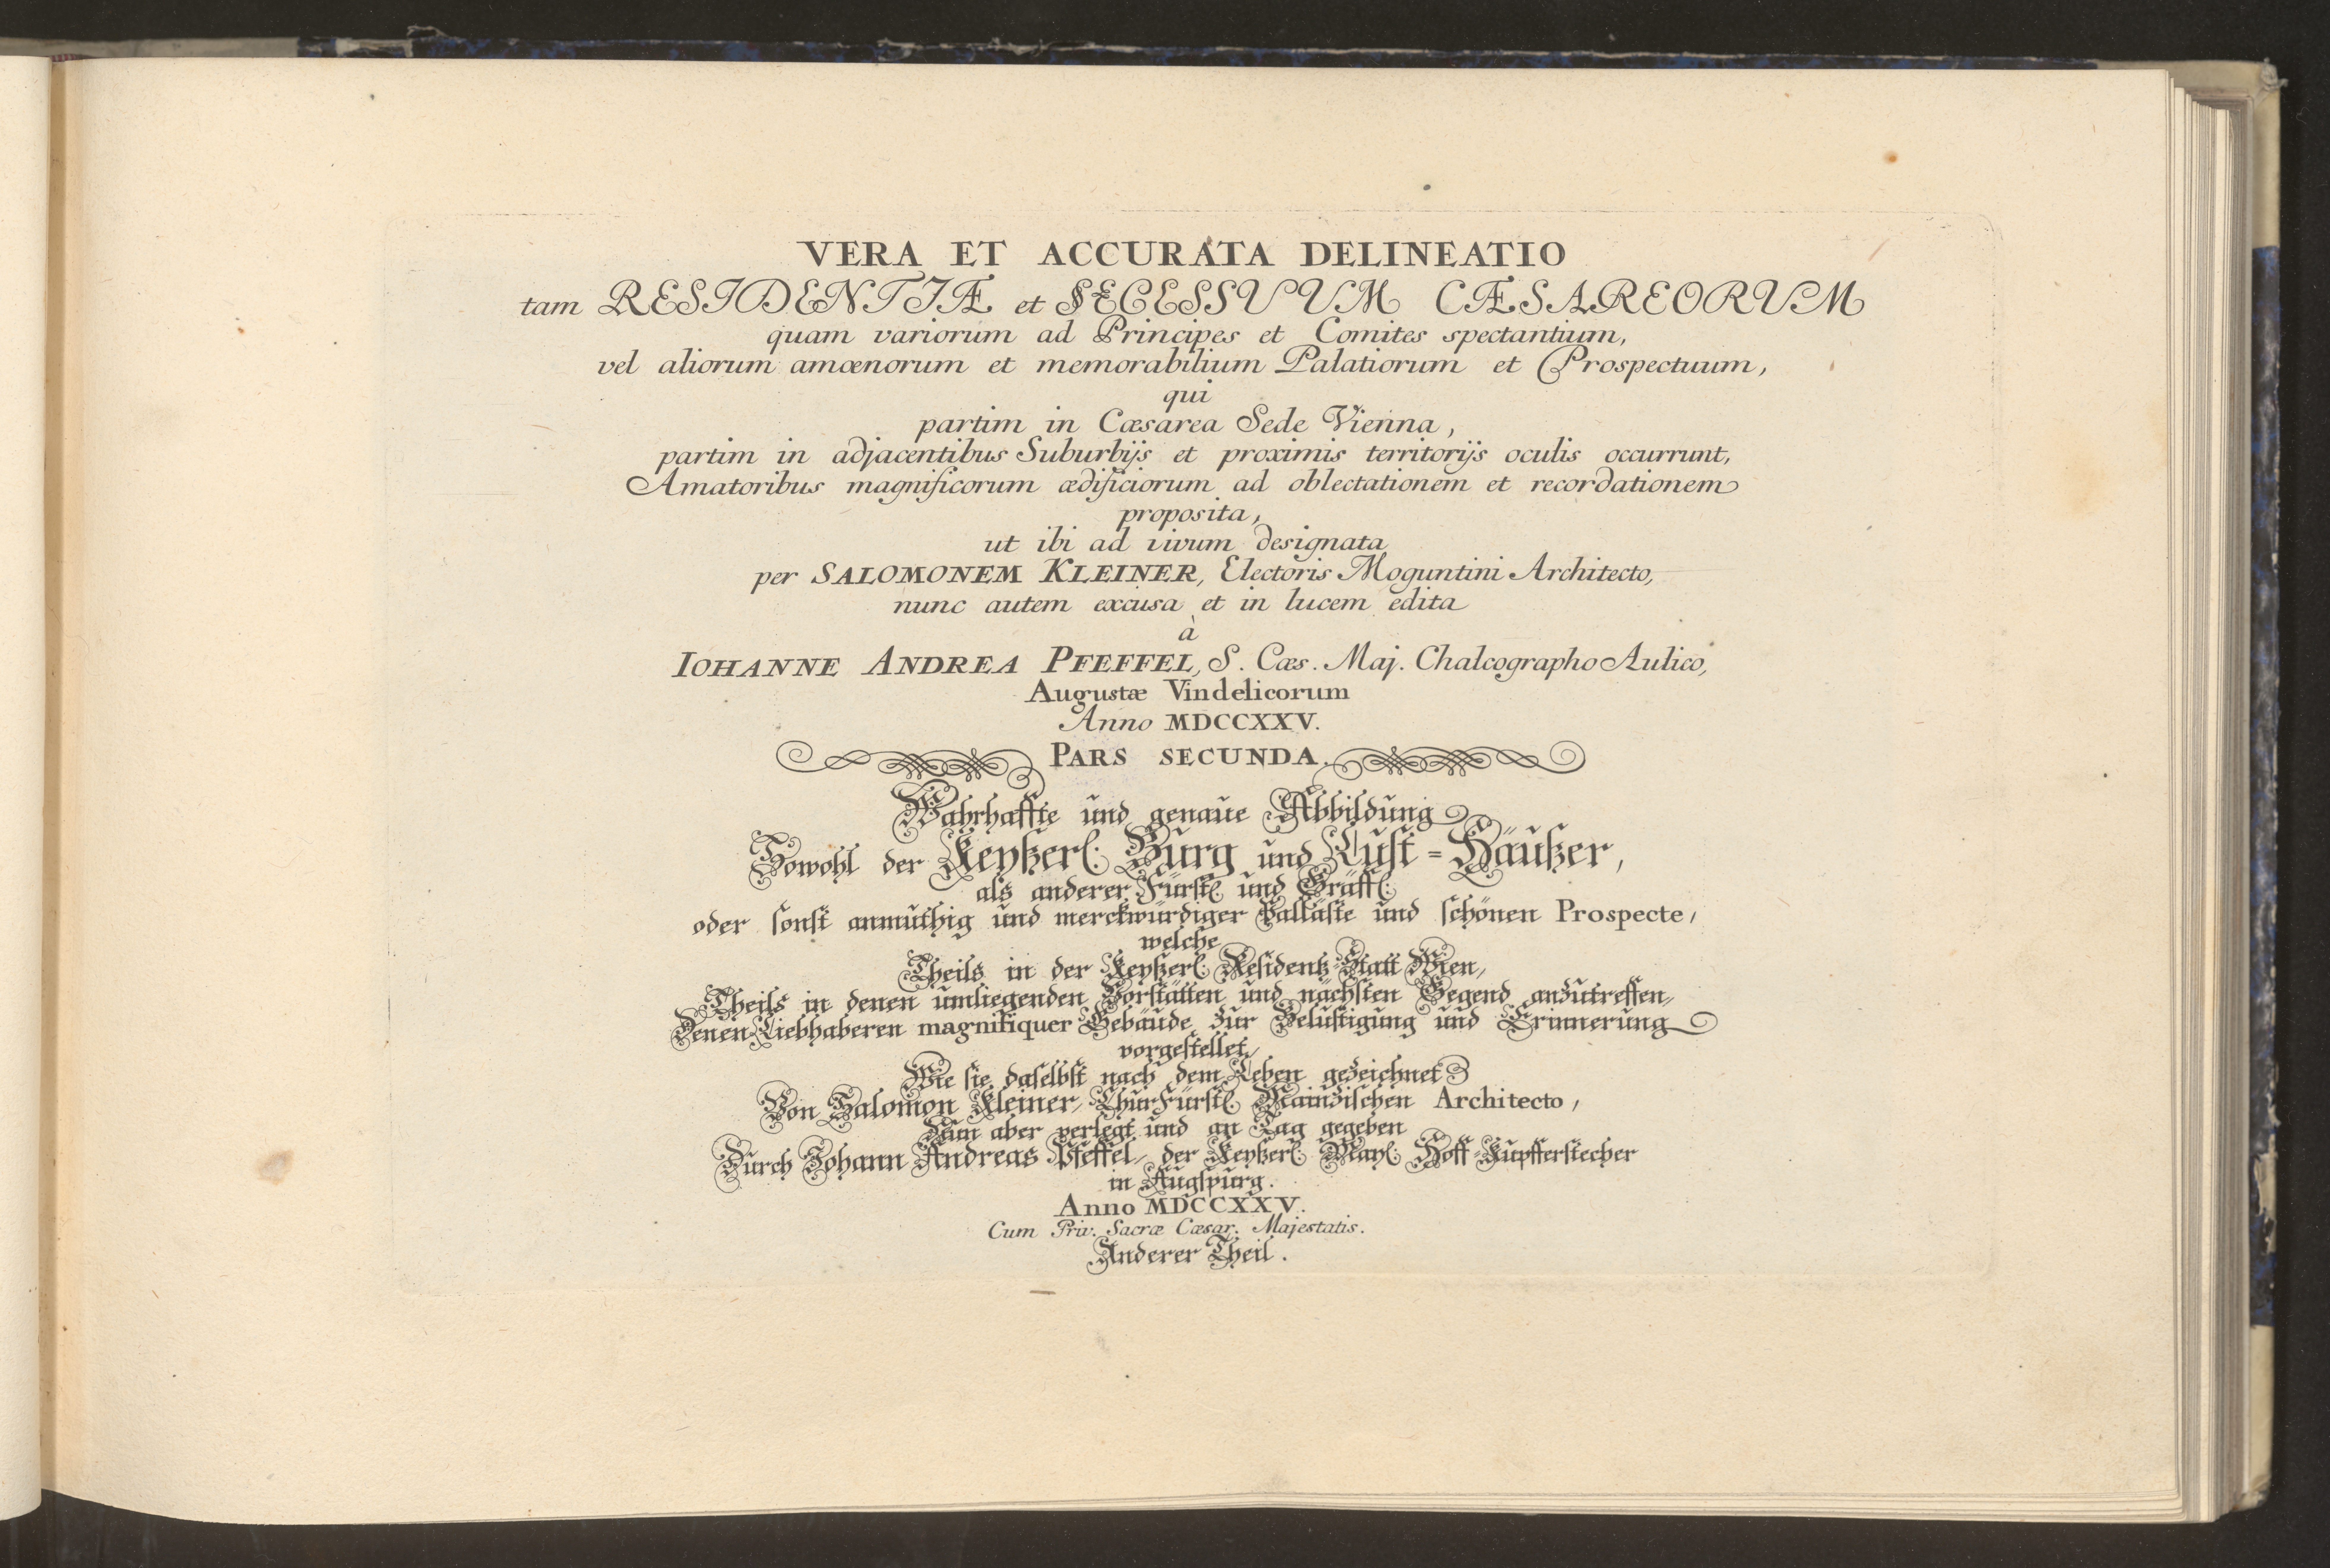 VERA ET ACCURATA DELINEATIO
tam RESIDENTIÆ et SECESSUUM CÆSAREORUM
quam variorum ad Principes et Comites spectantium,
vel aliorum amœnorum et memorabilium Palatiorum et Prospectuum,
qui
partim in Cæsarea Sede Vienna,
partim in adjacentibus Suburbijs et proximis territorijs oculis occurrunt,
Amatoribus magnificorum ædificiorum ad oblectationem et recordationem
proposita,
ut ibi ad vivum designata
per SALOMONEM KLEINER, Electoris Moguntini Architecto,
nunc autem excusa et in lucem edita
à
IOHANNE ANDREA PFEFFEL, S. Cæs. Maj. Chalcographo Aulico,
Augustæ Vindelicorum
Anno MDCCXXV.
PARS SECUNDA.
Wahrhaffte und genaue Abbildung
Sowohl der Keyßerl: Burg und Lust=Häußer,
als anderer Fürstl: und Gräffl:
oder sonst anmuthig und merckwürdiger Palläste und schönen Prospecte,
welche
Theils in der Keyßerl: Residentz-Statt Wien,
Theils in denen umliegenden Vorstätten und nächsten Gegend anzutreffen,
Denen Liebhaberen magnifiquer Gebäude zur Belustigung und Erinnerung
vorgestellet,
Wie sie daselbst nach dem Leben gezeichnet
Von Salomon Kleiner, ChurFürstl: Mainzischen Architecto,
Nun aber verlegt und an Tag gegeben
Durch Johann Andreas Pfeffel, der Keyßerl: May: Hoff-Kupfferstecher
in Augspurg.
Anno MDCCXXV.
Cum Priv: Sacræ Cæsar: Majestatis.
Anderer Theil.